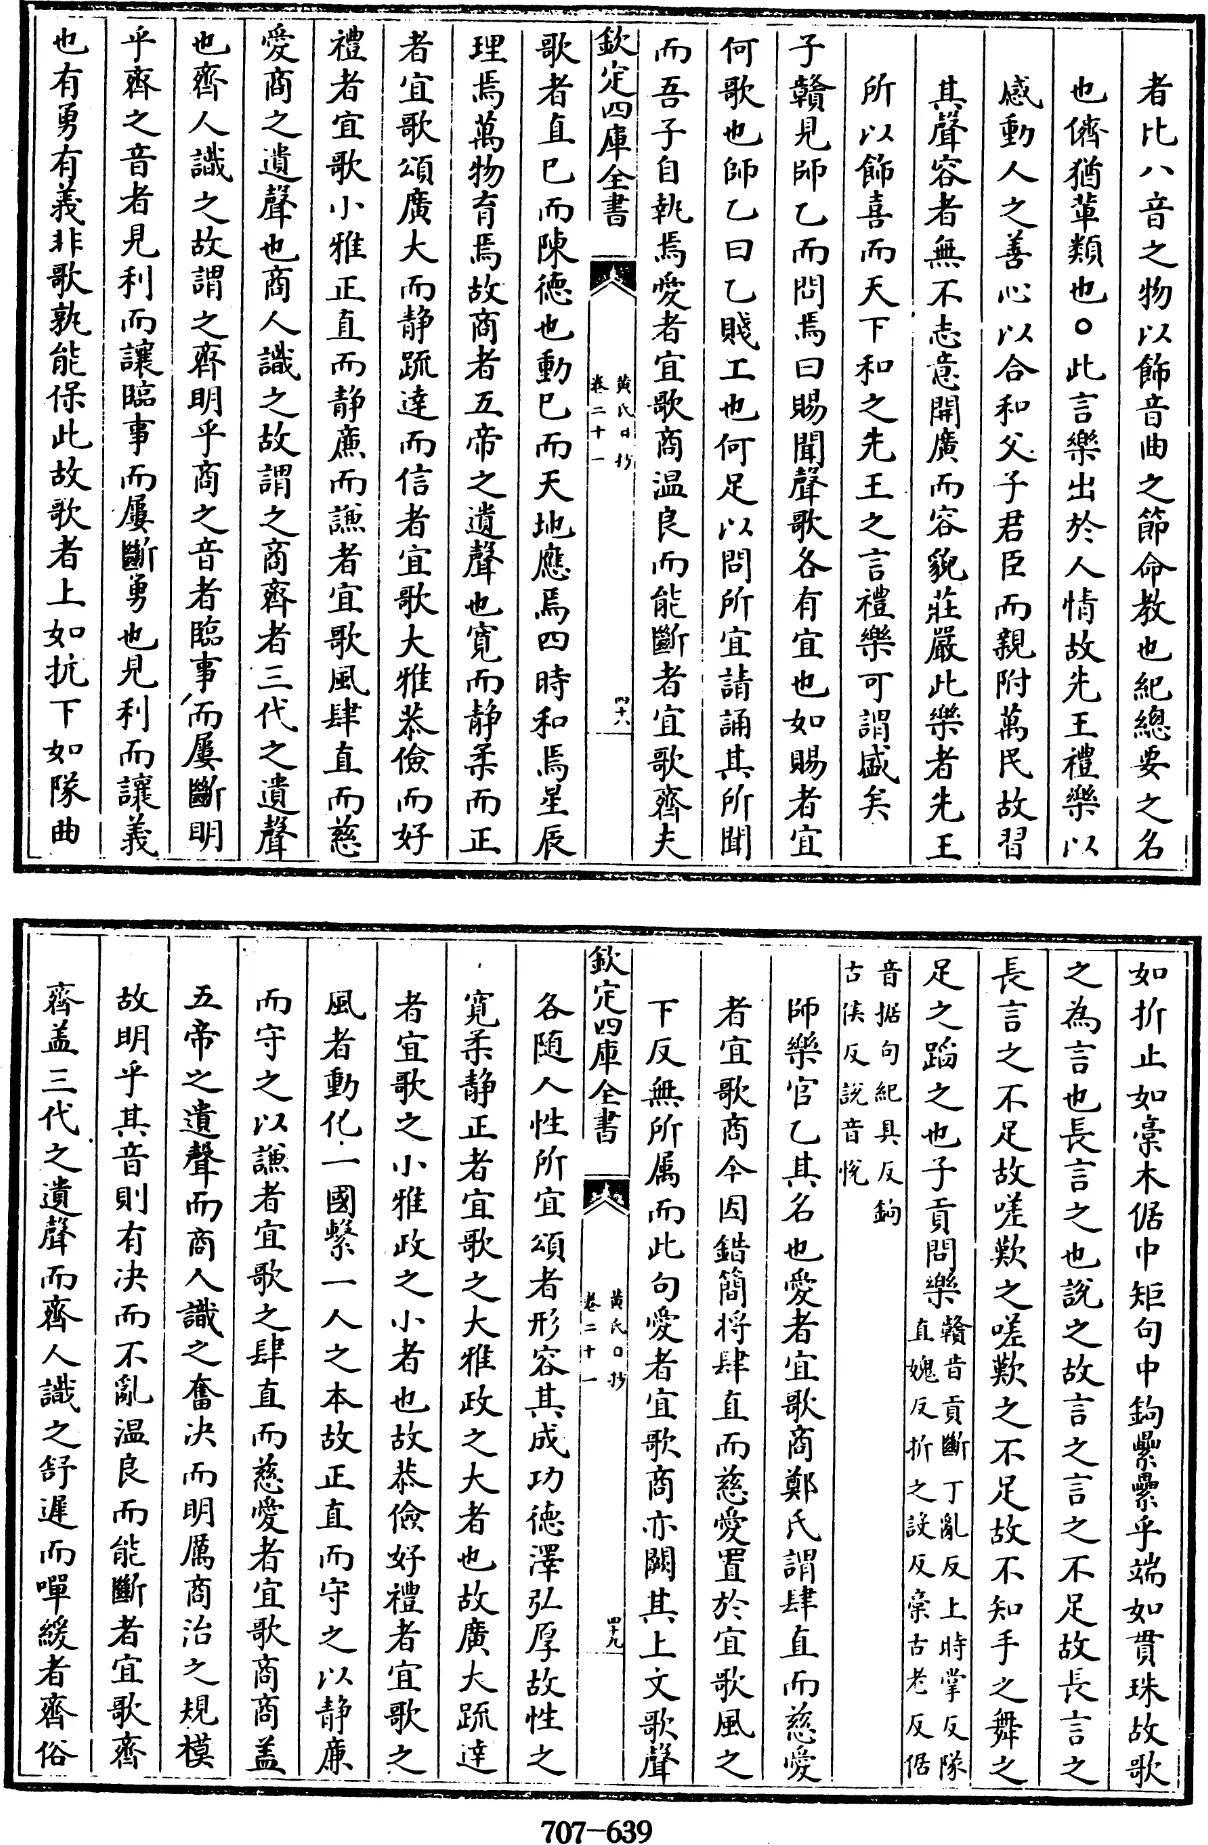 者比八音之物以飾音曲之節命教也紀總要之名
也儕猶軰類也○此言樂出於人情故先王禮樂以
感動人之善心以合和父子君臣而親附萬民故習
其聲容者無不志意開廣而容貌莊嚴此樂者先王
所以飾喜而天下和之先王之言禮樂可謂盛矣
子贛見師乙而問焉曰賜聞聲歌各有宜也如賜者宜
何歌也師乙曰乙賤工也何足以問所宜請誦其所聞
而吾子自執焉愛者宜歌商温良而能斷者宜歌齊夫
欽定四庫全書
黄氏日抄
卷二十一
四十八
歌者直已而陳德也動已而天地應焉四時和焉星辰
理焉萬物育焉故商者五帝之遺聲也寛而静柔而正
者宜歌頌廣大而静疏達而信者宜歌大雅恭儉而好
禮者宜歌小雅正直而静亷而謙者宜歌風肆直而慈
愛商之遺聲也商人識之故謂之商齊者三代之遺聲
也齊人識之故謂之齊明乎商之音者臨事而屢斷明
乎齊之音者見利而讓臨事而屢斷勇也見利而讓義
也有勇有義非歌孰能保此故歌者上如抗下如隊曲
如折止如槀木倨中矩句中鉤纍纍乎端如貫珠故歌
之為言也長言之也説之故言之言之不足故長言之
長言之不足故嗟歎之嗟歎之不足故不知手之舞之
足之蹈之也子貢問樂
贛音貢斷丁亂反上時掌反隊
直媿反折之設反槀古老反倨
音据句紀具反鉤
古侯反説音悅
師樂官乙其名也愛者宜歌商鄭氏謂肆直而慈愛
者宜歌商今因錯簡将肆直而慈愛置於宜歌風之
下反無所属而此句愛者宜歌商亦闕其上文歌聲
欽定四庫全書
黄氏日抄
卷二十一
四十九
各随人性所宜頌者形容其成功德澤弘厚故性之
寛柔静正者宜歌之大雅政之大者也故廣大疏達
者宜歌之小雅政之小者也故恭儉好禮者宜歌之
風者動化一國繫一人之本故正直而守之以静廉
而守之以謙者宜歌之肆直而慈愛者宜歌商商盖
五帝之遺聲而商人識之奮決而明厲商治之規模
故明乎其音則有决而不亂温良而能斷者宜歌齊
齊盖三代之遺聲而齊人識之舒遲而嘽緩者齊俗
707—639